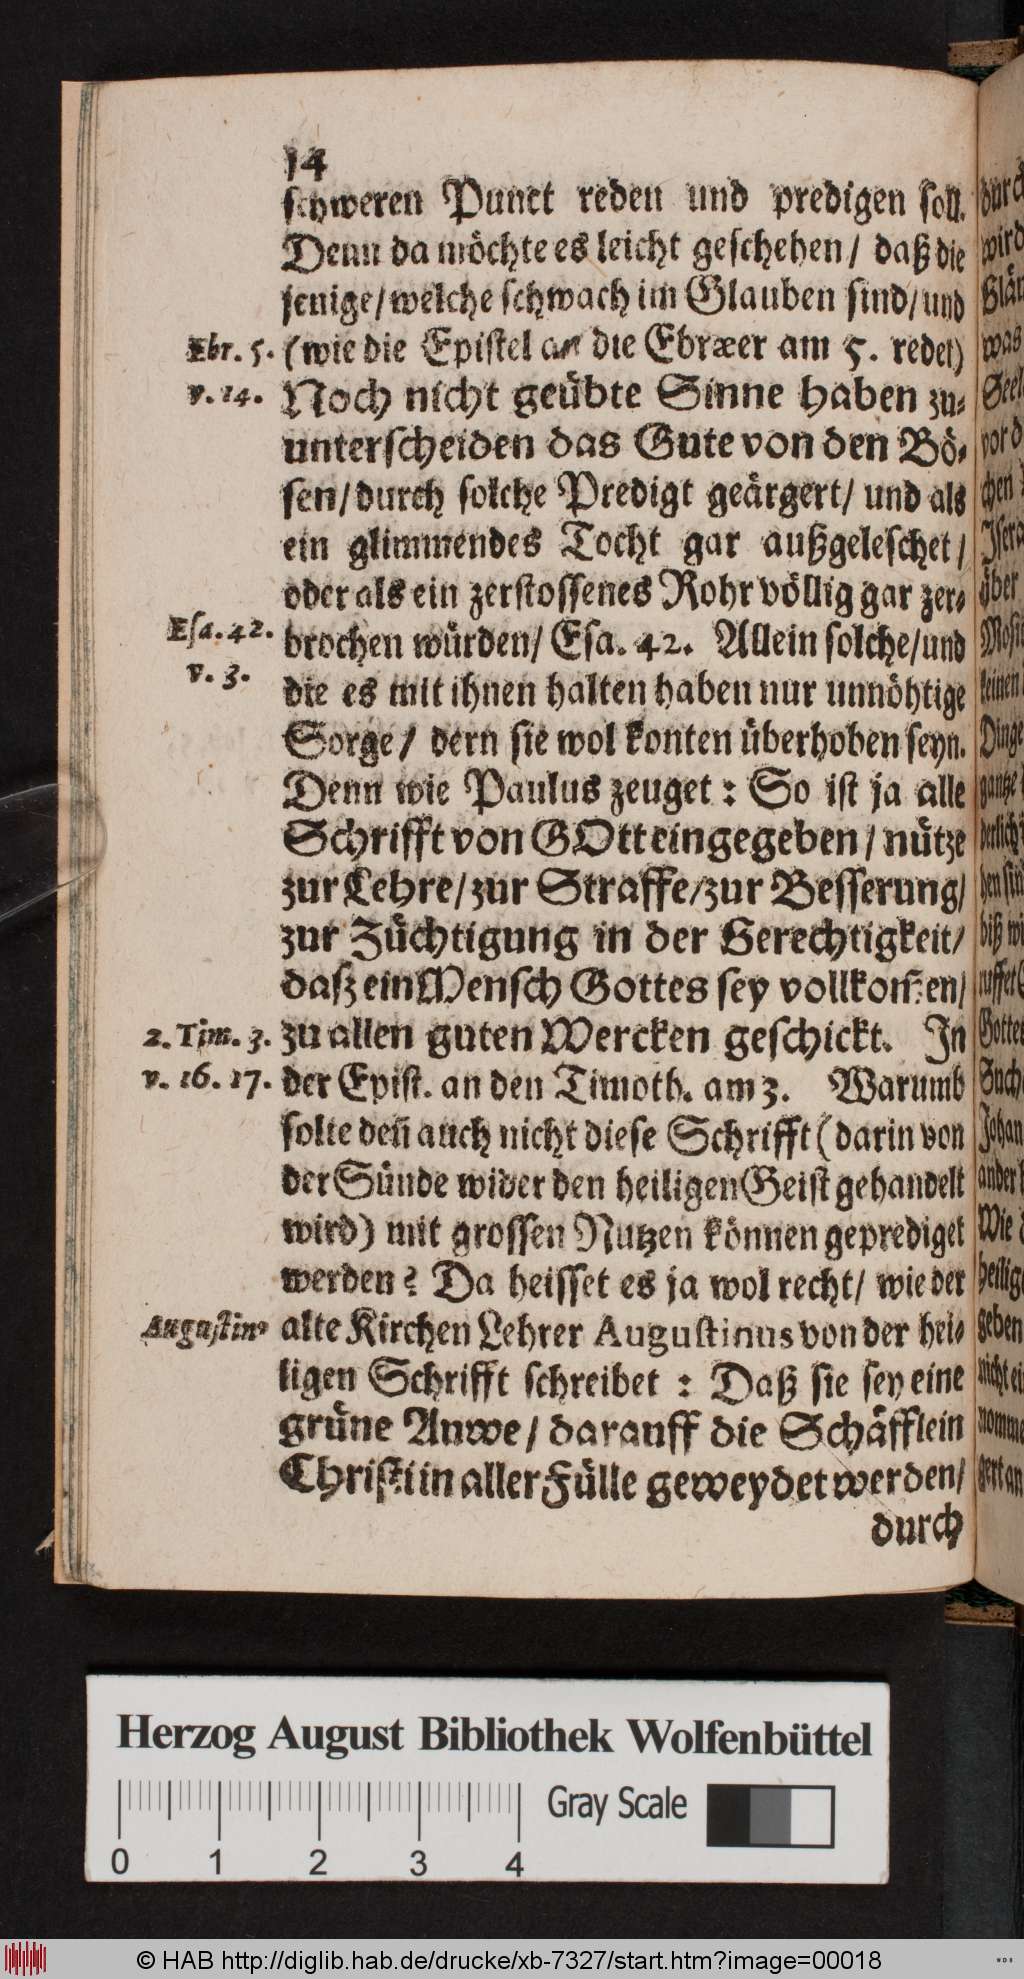 14
schweren Punct reden und predigen soll.
Denn da möchte es leicht geschehen / daß die
jenige / welche schwach im Glauben sind / und
Ebr. 5. (wie die Epistel an die Ebræer am 5. redet)
v. 14. Noch nicht geübte Sinne haben zu-
unterscheiden das Gute von den Bö-
sen / durch solche Predigt geärgert / und als
ein glimmendes Tocht gar außgeleschet /
oder als ein zerstossenes Rohr völlig gar zer-
Esa. 42. brochen würden / Esa. 42. Allein solche / und
v. 3. die es mit ihnen halten haben nur unnöhtige
Sorge / dern sie wol konten überhoben seyn.
Denn wie Paulus zeuget : So ist ja alle
Schrifft von GOtt eingegeben / nütze
zur Lehre / zur Straffe / zur Besserung /
zur Züchtigung in der Gerechtigkeit /
daß ein Mensch Gottes sey vollkom̄en /
2. Tim. 3. zu allen guten Wercken geschickt. In
v. 16. 17. der Epist. an den Timoth. am 3. Warumb
solte den̄ auch nicht diese Schrifft (darin von
der Sünde wider den heiligen Geist gehandelt
wird) mit grossen Nutzen können geprediget
werden? Da heisset es ja wol recht / wie der
Augustinꝰ alte Kirchen Lehrer Augustinus von der hei-
ligen Schrifft schreibet : Daß sie sey eine
grüne Auwe / darauff die Schäfflein
Christi in aller Fülle geweydet werden /
durch
Herzog August Bibliothek Wolfenbüttel
Gray Scale
0 1 2 3 4
© HAB http://diglib.hab.de/drucke/xb-7327/start.htm?image=00018